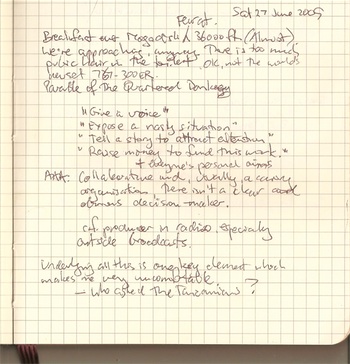 Sat 27 June 2009
Breakfast over Mogadishu 36000ft (Almost)
We're approaching, anyway. There is too much
pubic hair in the toilet. OK, not the world's
newest 767-300ER.
Parable of the Quartered Donkey
"Give a voice"
"Expose a nasty situation"
"Tell a story to attract attention"
"Raise money to fund this work."
+ everyone's personal aims
Collaborative and, usually, a
organisation, there isn't a clear and
obvious decision-maker.
cf. producer in radio, especially
outside broadcasts.
Underlying all this is one key element which
makes me very uncomfortable
– who asked the Tanzanians?